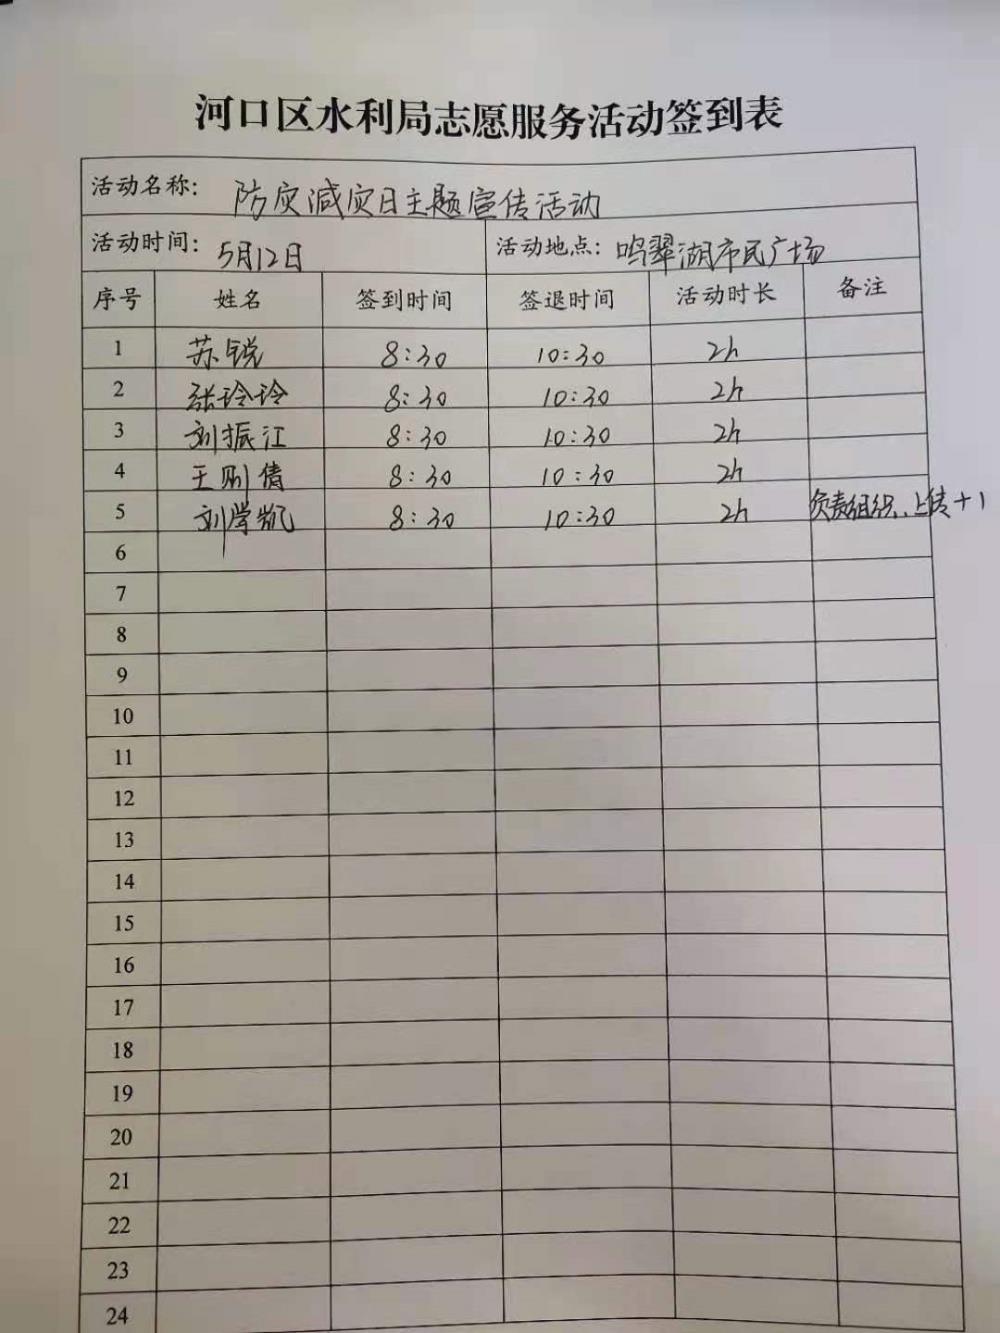 河口区水利局志愿服务活动签到表
活动名称: 防灾减灾日主题宣传活动
活动时间: 5月12日 活动地点: 鸣翠湖市民广场
序号 姓名 签到时间 签退时间 活动时长 备注
1 苏锐 8:30 10:30 2h
2 张玲玲 8:30 10:30 2h
3 刘振江 8:30 10:30 2h
4 王刚倩 8:30 10:30 2h
5 刘学凯 8:30 10:30 2h 负责组织、上传+1
6
7
8
9
10
11
12
13
14
15
16
17
18
19
20
21
22
23
24